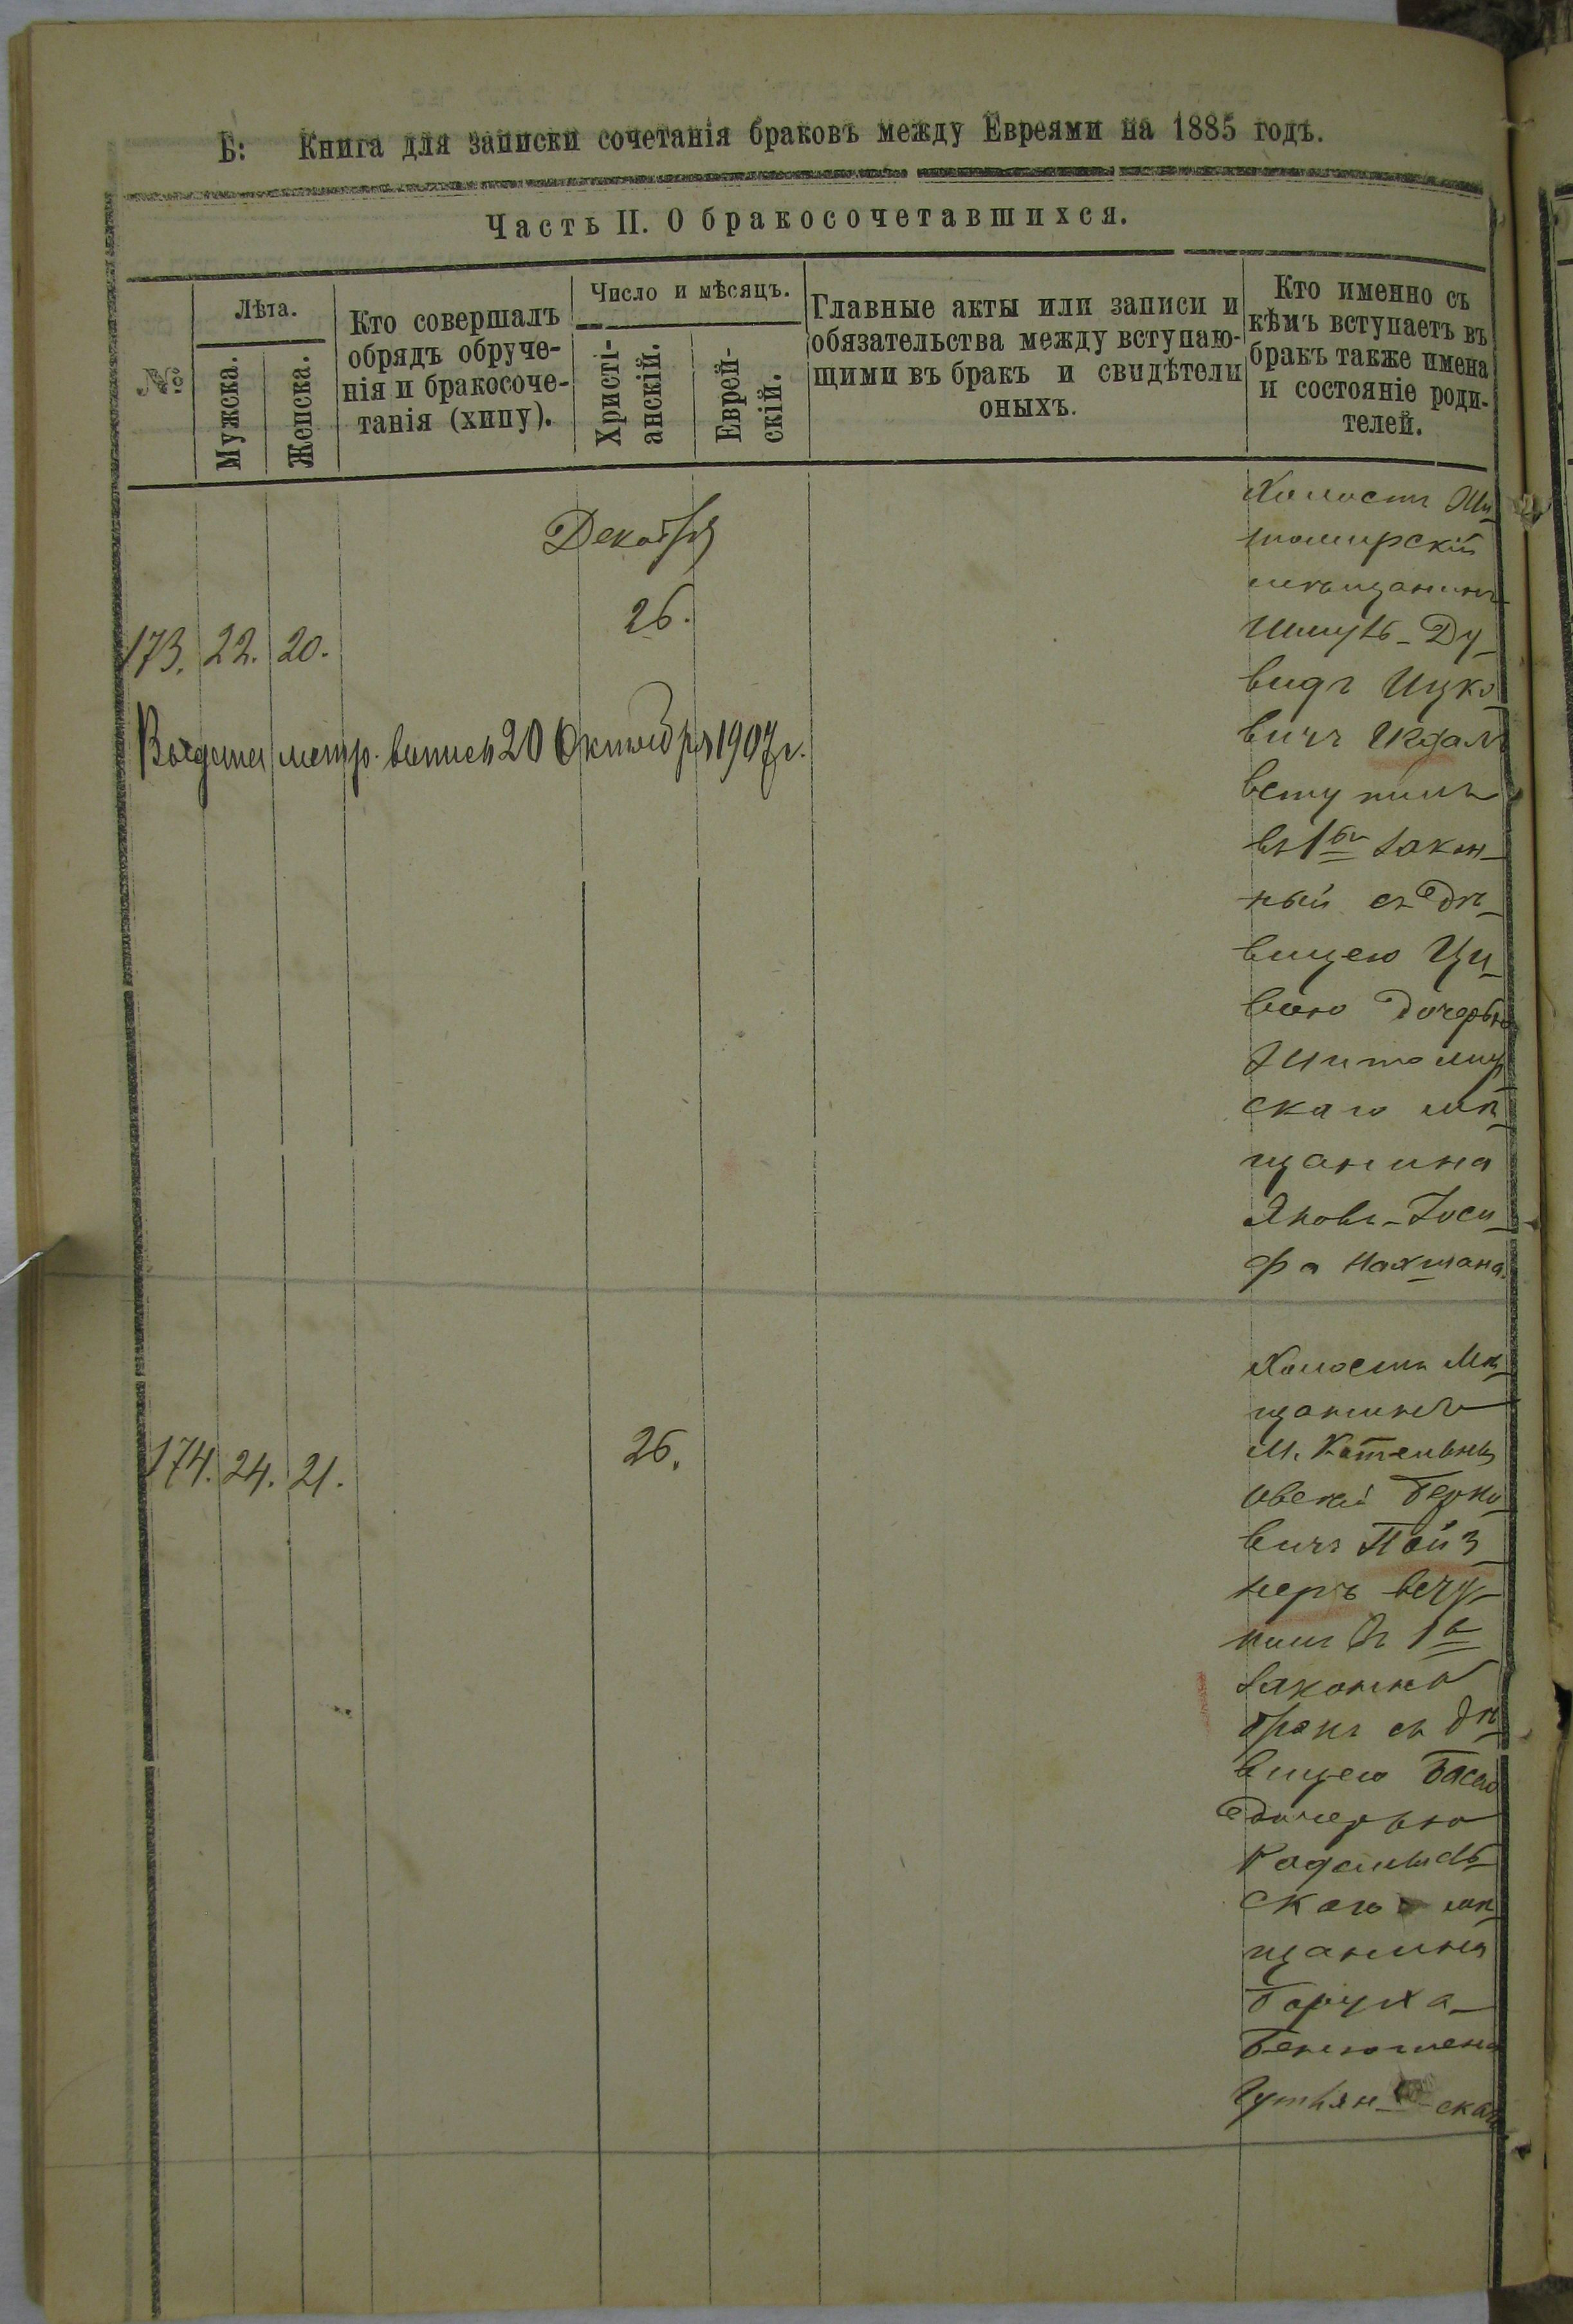 Б: Книга для записки сочетанія браковъ между Евреями на 1885 годъ.
Часть II. О бракосочетавшихся.
№
Лѣта.
Мужска.
Женска.
Кто совершалъ
обрядъ обруче-
нія и бракосоче-
танія (хипу).
Число и мѣсяцъ.
Христі-
анскій.
Еврей-
скій.
Главные акты или записи и
обязательства между вступаю-
щими въ бракъ и свидѣтели
оныхъ.
Кто именно съ
кѣмъ вступаетъ въ
бракъ также имена
и состояніе роди-
телей.
Декабря
173. 22. 20.
26.
Выдана метр. выпись 20 Октября 1907 г.
Холостъ Жи-
томирскій
мѣщанинъ
Шмуль-Ду-
видъ Ицко-
вичъ
вступилъ
въ 1ый закон-
ный съ дѣ-
вицею Ци-
вьею дочерью
Житомир-
скаго мѣ-
щанина
Яковъ-Іоси-
фа Нахмана.
174. 24. 21.
26.
Холостъ Мѣ-
щанинъ
М. Котельни
Берко-
вичъ Пойз-
неръ всту-
пилъ въ 1й
законный
бракъ съ дѣ-
вицею Басею
дочерью
Радомысль-
скаго мѣ-
щанина
Боруха-
Беньюмена
Гутянскаго